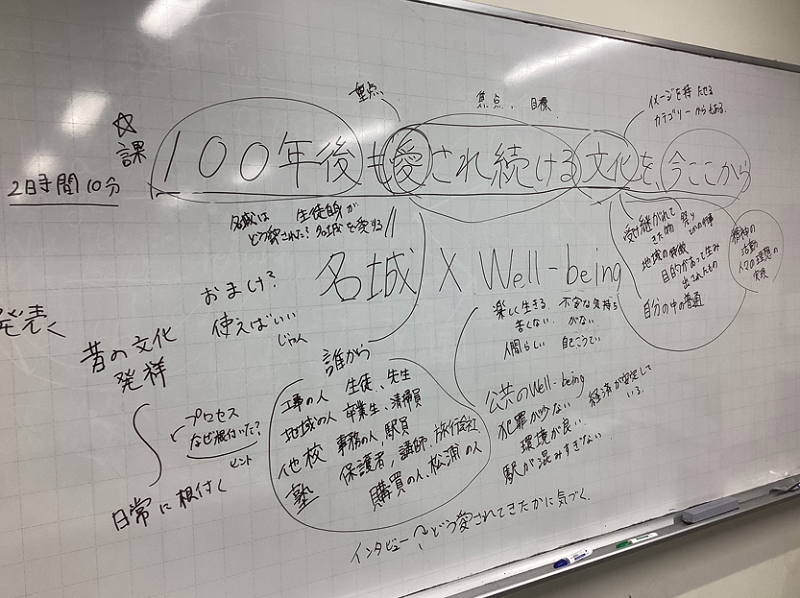 重点
焦点、目標
イメージを持たせる
カテゴリーからもある
☆
課
100年後も愛され続ける文化を、今ここから
2日時間10分
名城は 生徒自身が
どう愛された？名城を愛する//
受け継がれて
きた物 祭り
地域の特徴
目的があって生み
出されたもの
自分の中の普通
精神の
活動
人の理想の
実現
名城 X Well-being
おまけ？
使えばいい
じゃん
発表く
昔の文化
発祥
プロセス
なぜ根付いた？
ヒント
日常に根付く
誰から
工事の人 生徒、先生
地域の人 卒業生、清掃員
他校 事務の人、駅員
塾 保護者、講師、旅行会社
購買の人、松浦の人
楽しく生きる 不安な気持ち
苦くない がない
人間らしい 自こうてい
公共のWell-being
犯罪が少ない 経済が安定して
いる。
環境が良い、
駅が混みすぎない、
インタビュー↷どう愛されてきたかに気づく、